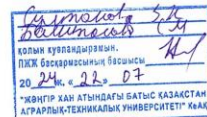 Султанова Е.К
қолын куәландырамын.
ПЖЖ басқармасының басшысы
20 24ж. « 22 » 07
"ЖӘҢГІР ХАН АТЫНДАҒЫ БАТЫС ҚАЗАҚСТАН
АГРАРЛЫҚ-ТЕХНИКАЛЫҚ УНИВЕРСИТЕТІ" КеАҚ